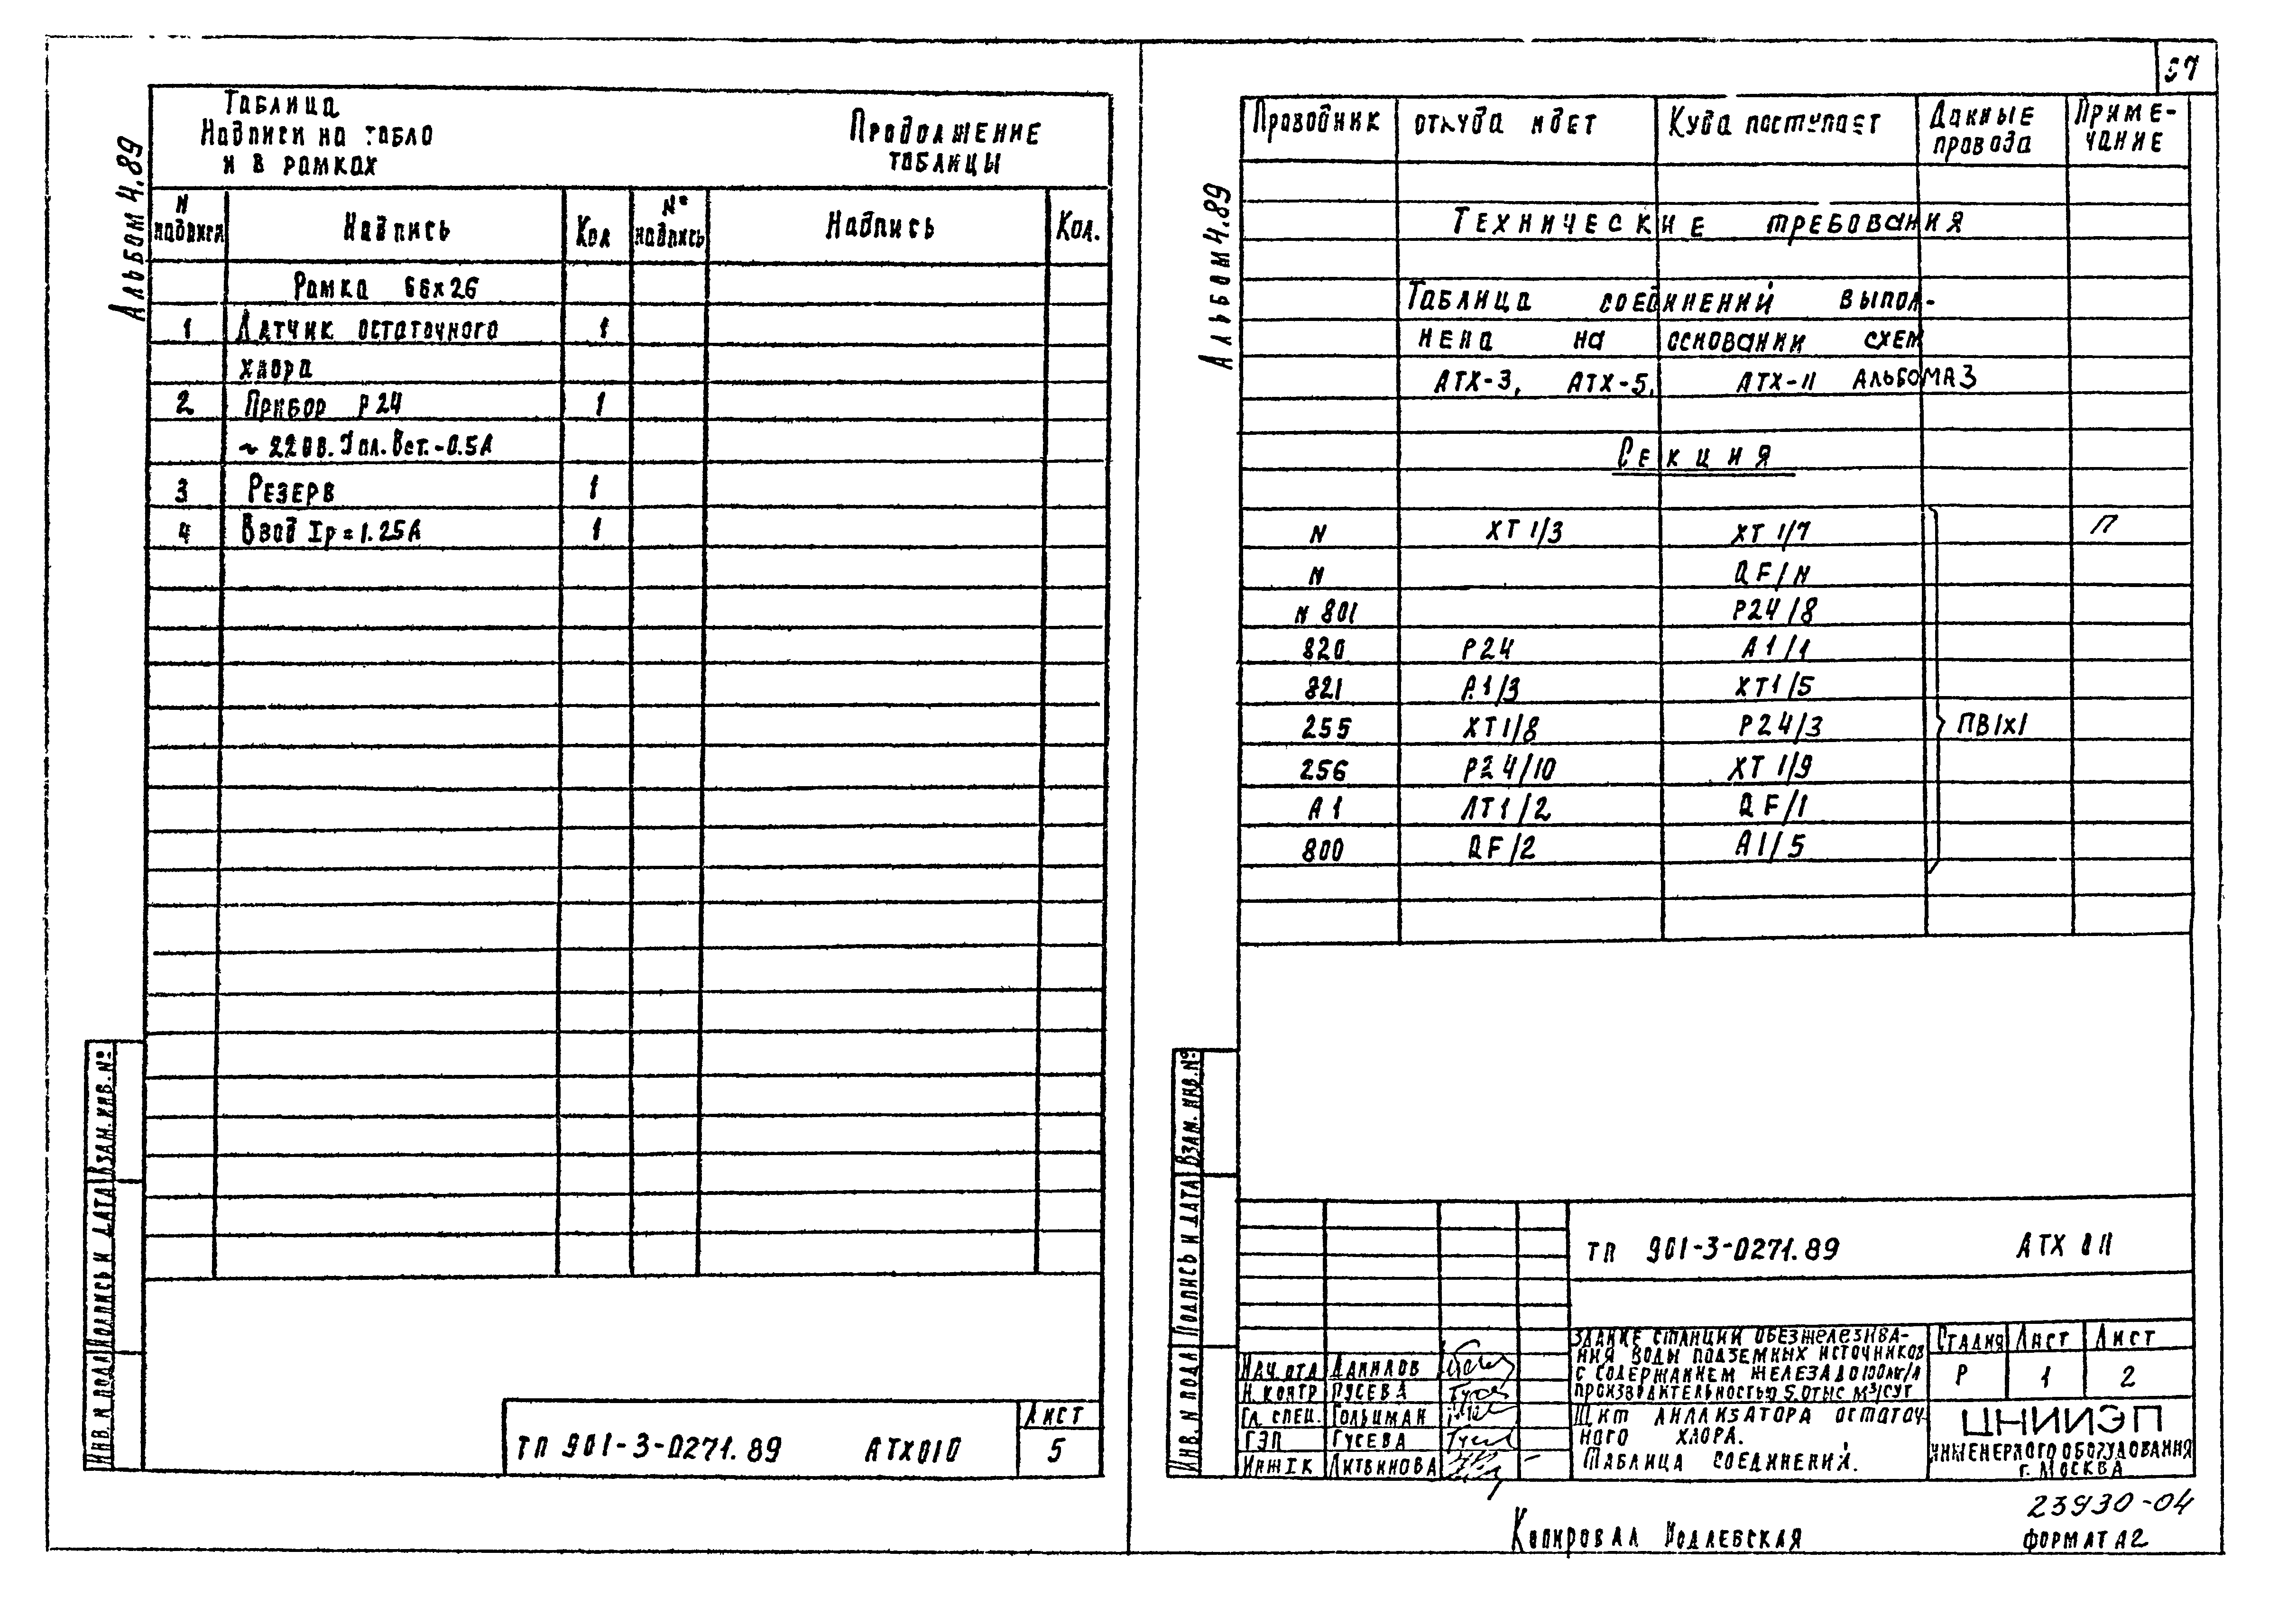 Альбом 4.89
Таблица
Надписи на табло
и в рамках
Продолжение
таблицы
N надписи Надпись Кол N° надпись Надпись Кол.
Рамка 66х26
1 Датчик остаточного 1
хлора
2 Прибор Р24 1
~ 220В. Iпл.Вст.-0.5А
3 Резерв 1
4 Ввод Iр=1.25А 1
Взам. инв. №
Подпись и дата
Инв. N подл
ТП 901-3-0271.89 АТХ010
Лист
5
57
Альбом 4.89
Проводник откуда идет Куда поступает Данные провода Приме-чание
Технические требования
Таблица соединений выпол-
нена на основании схем
АТХ-3, АТХ-5, АТХ-11 Альбома 3
Секция
N ХТ1/3 ХТ1/7 П
N QF/N
N 801 Р24/8
820 Р24 А1/1
821 А1/3 ХТ1/5
255 ХТ1/8 Р24/3 ПВ1х1
256 Р24/10 ХТ1/9
А1 ХТ1/2 QF/1
800 QF/2 А1/5
Взам. инв. №
Подпись и дата
Инв. N подл
ТП 901-3-0271.89 АТХ 011
Нач. отд Данилов
Н. контр Гусева
Гл. спец. Гольцман
ГЭП Гусева
Инж Iк Литвинова
Здание станции обезжелезива-
ния воды подземных источников
с содержанием железа до 10 мг/л
производительностью 5.0 тыс м³/сут
Щит анализатора остаточ-
ного хлора.
Таблица соединений.
Стадия Лист Лист
Р 1 2
ЦНИИЭП
инженерного оборудования
г. Москва
23930-04
Копировал
формат А2